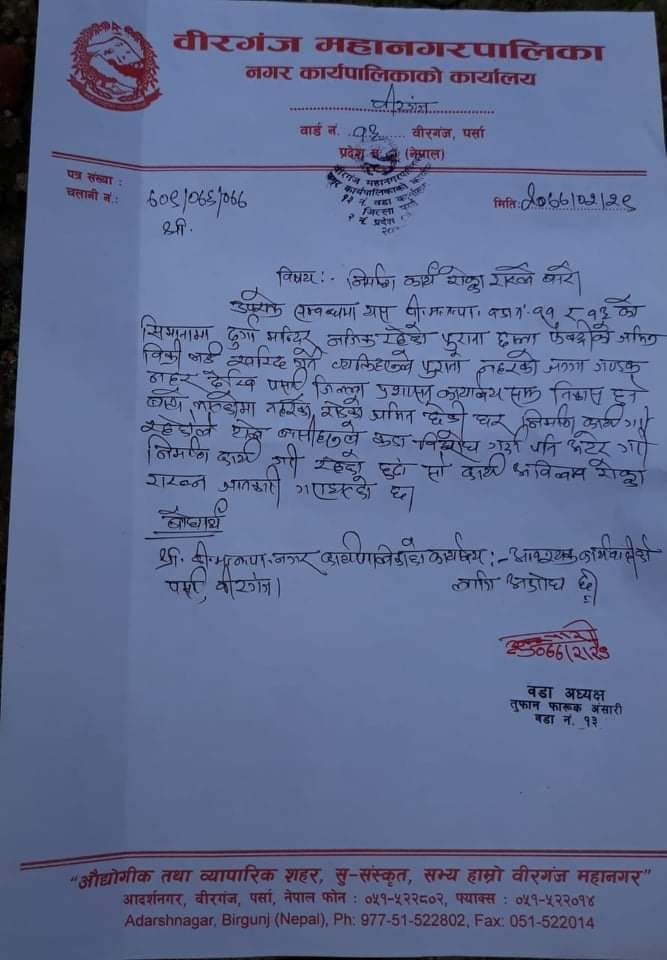 वीरगंज महानगरपालिका
नगर कार्यपालिकाको कार्यालय
वीरगंज
वार्ड नं. १३ वीरगंज, पर्सा
प्रदेश नं. २ (नेपाल)
वीरगंज महानगरपालिका
नगर कार्यपालिकाको कार्यालय
१३ नं. वडा कार्यालय
जिल्ला पर्सा
२ नं. प्रदेश
पत्र संख्या :
चलानी नं.:
मिति: २०७७/०२/२९
श्री.
विषय:- निर्माण कार्य रोक्का राख्ने बारे।
उपरोक्त सम्बन्धमा यस वी.म.न.पा. वडा नं. ११ र १३ को
सिमानामा दुर्गा मन्दिर नजिक रहेको पुरानो छाला फेक्ट्रीको जमिन
खरिद गर्ने व्यक्तिहरुले पुरानो नहरको जग्गा गण्डक
नहर देखि पर्सा जिल्ला प्रशासन कार्यालय सम्म निकास हुने
नहरको जमिन छेकी घर निर्माण कार्य
विरोध गर्दा पनि अटेर गरी
निर्माण कार्य गरी रहेको हुदा सो कार्य अविलम्ब रोक्का
राख्न जानकारी छ।
बोधार्थ
श्री वी.म.न.पा. नगर कार्यपालिकाको कार्यालय:- आवश्यक कार्यवाहीको
पर्सा, वीरगंज। लागि अनुरोध छ।
वडा अध्यक्ष
तुफान फारूक अंसारी
वडा नं. १३
“औद्योगीक तथा व्यापारिक शहर, सु-संस्कृत, सभ्य हाम्रो वीरगंज महानगर”
आदर्शनगर, वीरगंज, पर्सा, नेपाल फोन : ०५१-५२२८०२, फ्याक्स : ०५१-५२२०१४
Adarshnagar, Birgunj (Nepal), Ph: 977-51-522802, Fax: 051-522014